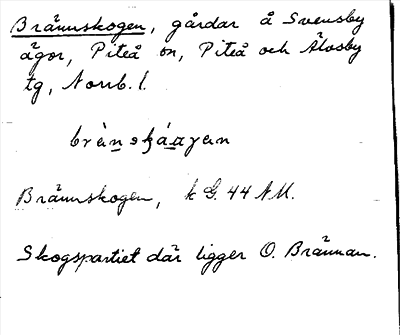 Brännskogen, gårdar å Svensby
ägor, Piteå sn, Piteå och Älvsby
tg, Norrb. l.
Brännskogen, k G. 44 NM.
Skogspartiet där ligger O. Brännan.